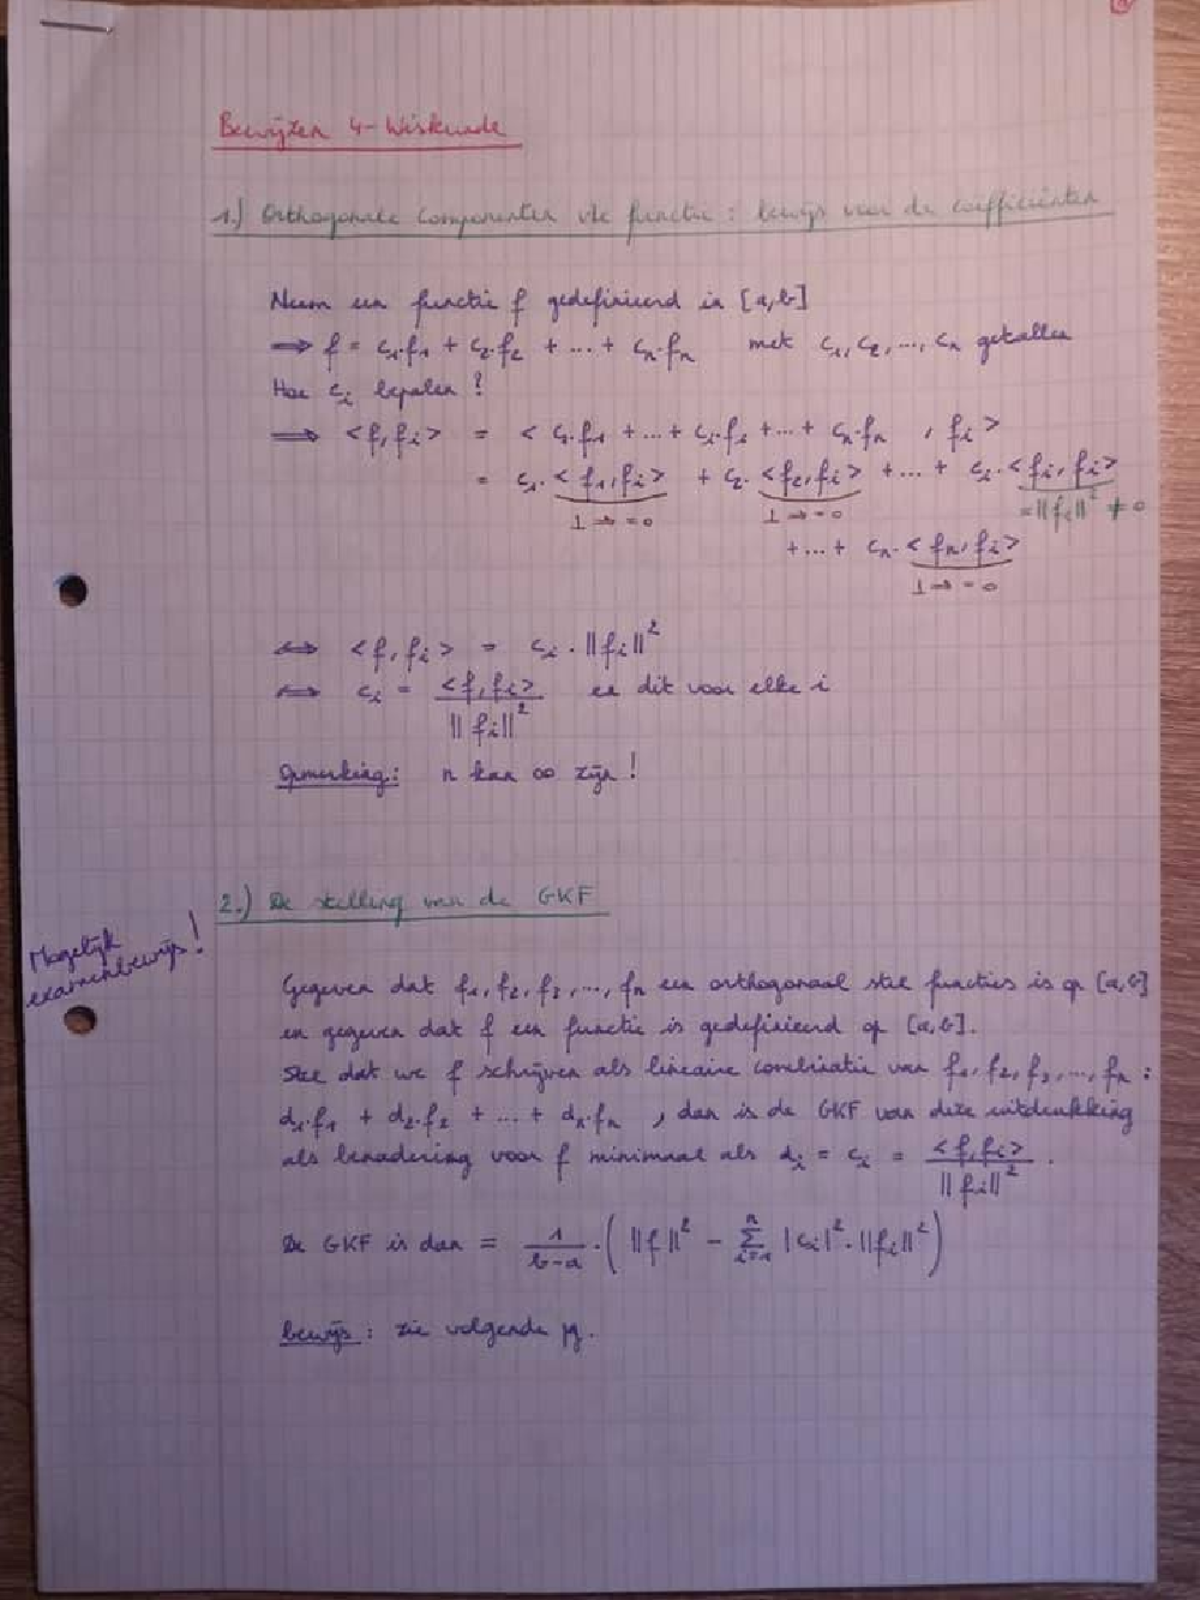 Bewijzen 4- Wiskunde
1.) Orthogonale componenten v/e functie : bewijs voor de coëfficiënten
Neem een functie f gedefinieerd in [a,b]
⟹ f = c₁.f₁ + c₂.f₂ + ... + cₙ.fₙ met c₁, c₂, ..., cₙ getallen
Hoe cᵢ bepalen ?
⟹ <f,fᵢ> = < c₁.f₁ + ... + cᵢ.fᵢ + ... + cₙ.fₙ , fᵢ >
= c₁.<f₁,fᵢ> + c₂.<f₂,fᵢ> + ... + cᵢ.<fᵢ,fᵢ>
⊥ ⇒ = 0 ⊥ ⇒ = 0 = ||fᵢ||² ≠ 0
+ ... + cₙ.<fₙ,fᵢ>
⊥ ⇒ = 0
⟺ <f,fᵢ> = cᵢ . ||fᵢ||²
⟺ cᵢ = <f,fᵢ> / ||fᵢ||² en dit voor elke i
Opmerking: n kan ∞ zijn !
2.) De stelling van de GKF
Mogelijk
examenbewijs!
Gegeven dat f₁, f₂, f₃, ..., fₙ een orthogonaal stel functies is op [a,b]
en gegeven dat f een functie is gedefinieerd op [a,b].
Stel dat we f schrijven als lineaire combinatie van f₁, f₂, f₃, ..., fₙ :
d₁.f₁ + d₂.f₂ + ... + dₙ.fₙ , dan is de GKF van deze uitdrukking
als benadering voor f minimaal als dᵢ = cᵢ = <f,fᵢ> / ||fᵢ||² .
De GKF is dan = 1/(b-a) . ( ||f||² - Σᵢ₌₁ⁿ |cᵢ|² . ||fᵢ||² )
bewijs : zie volgende pg.